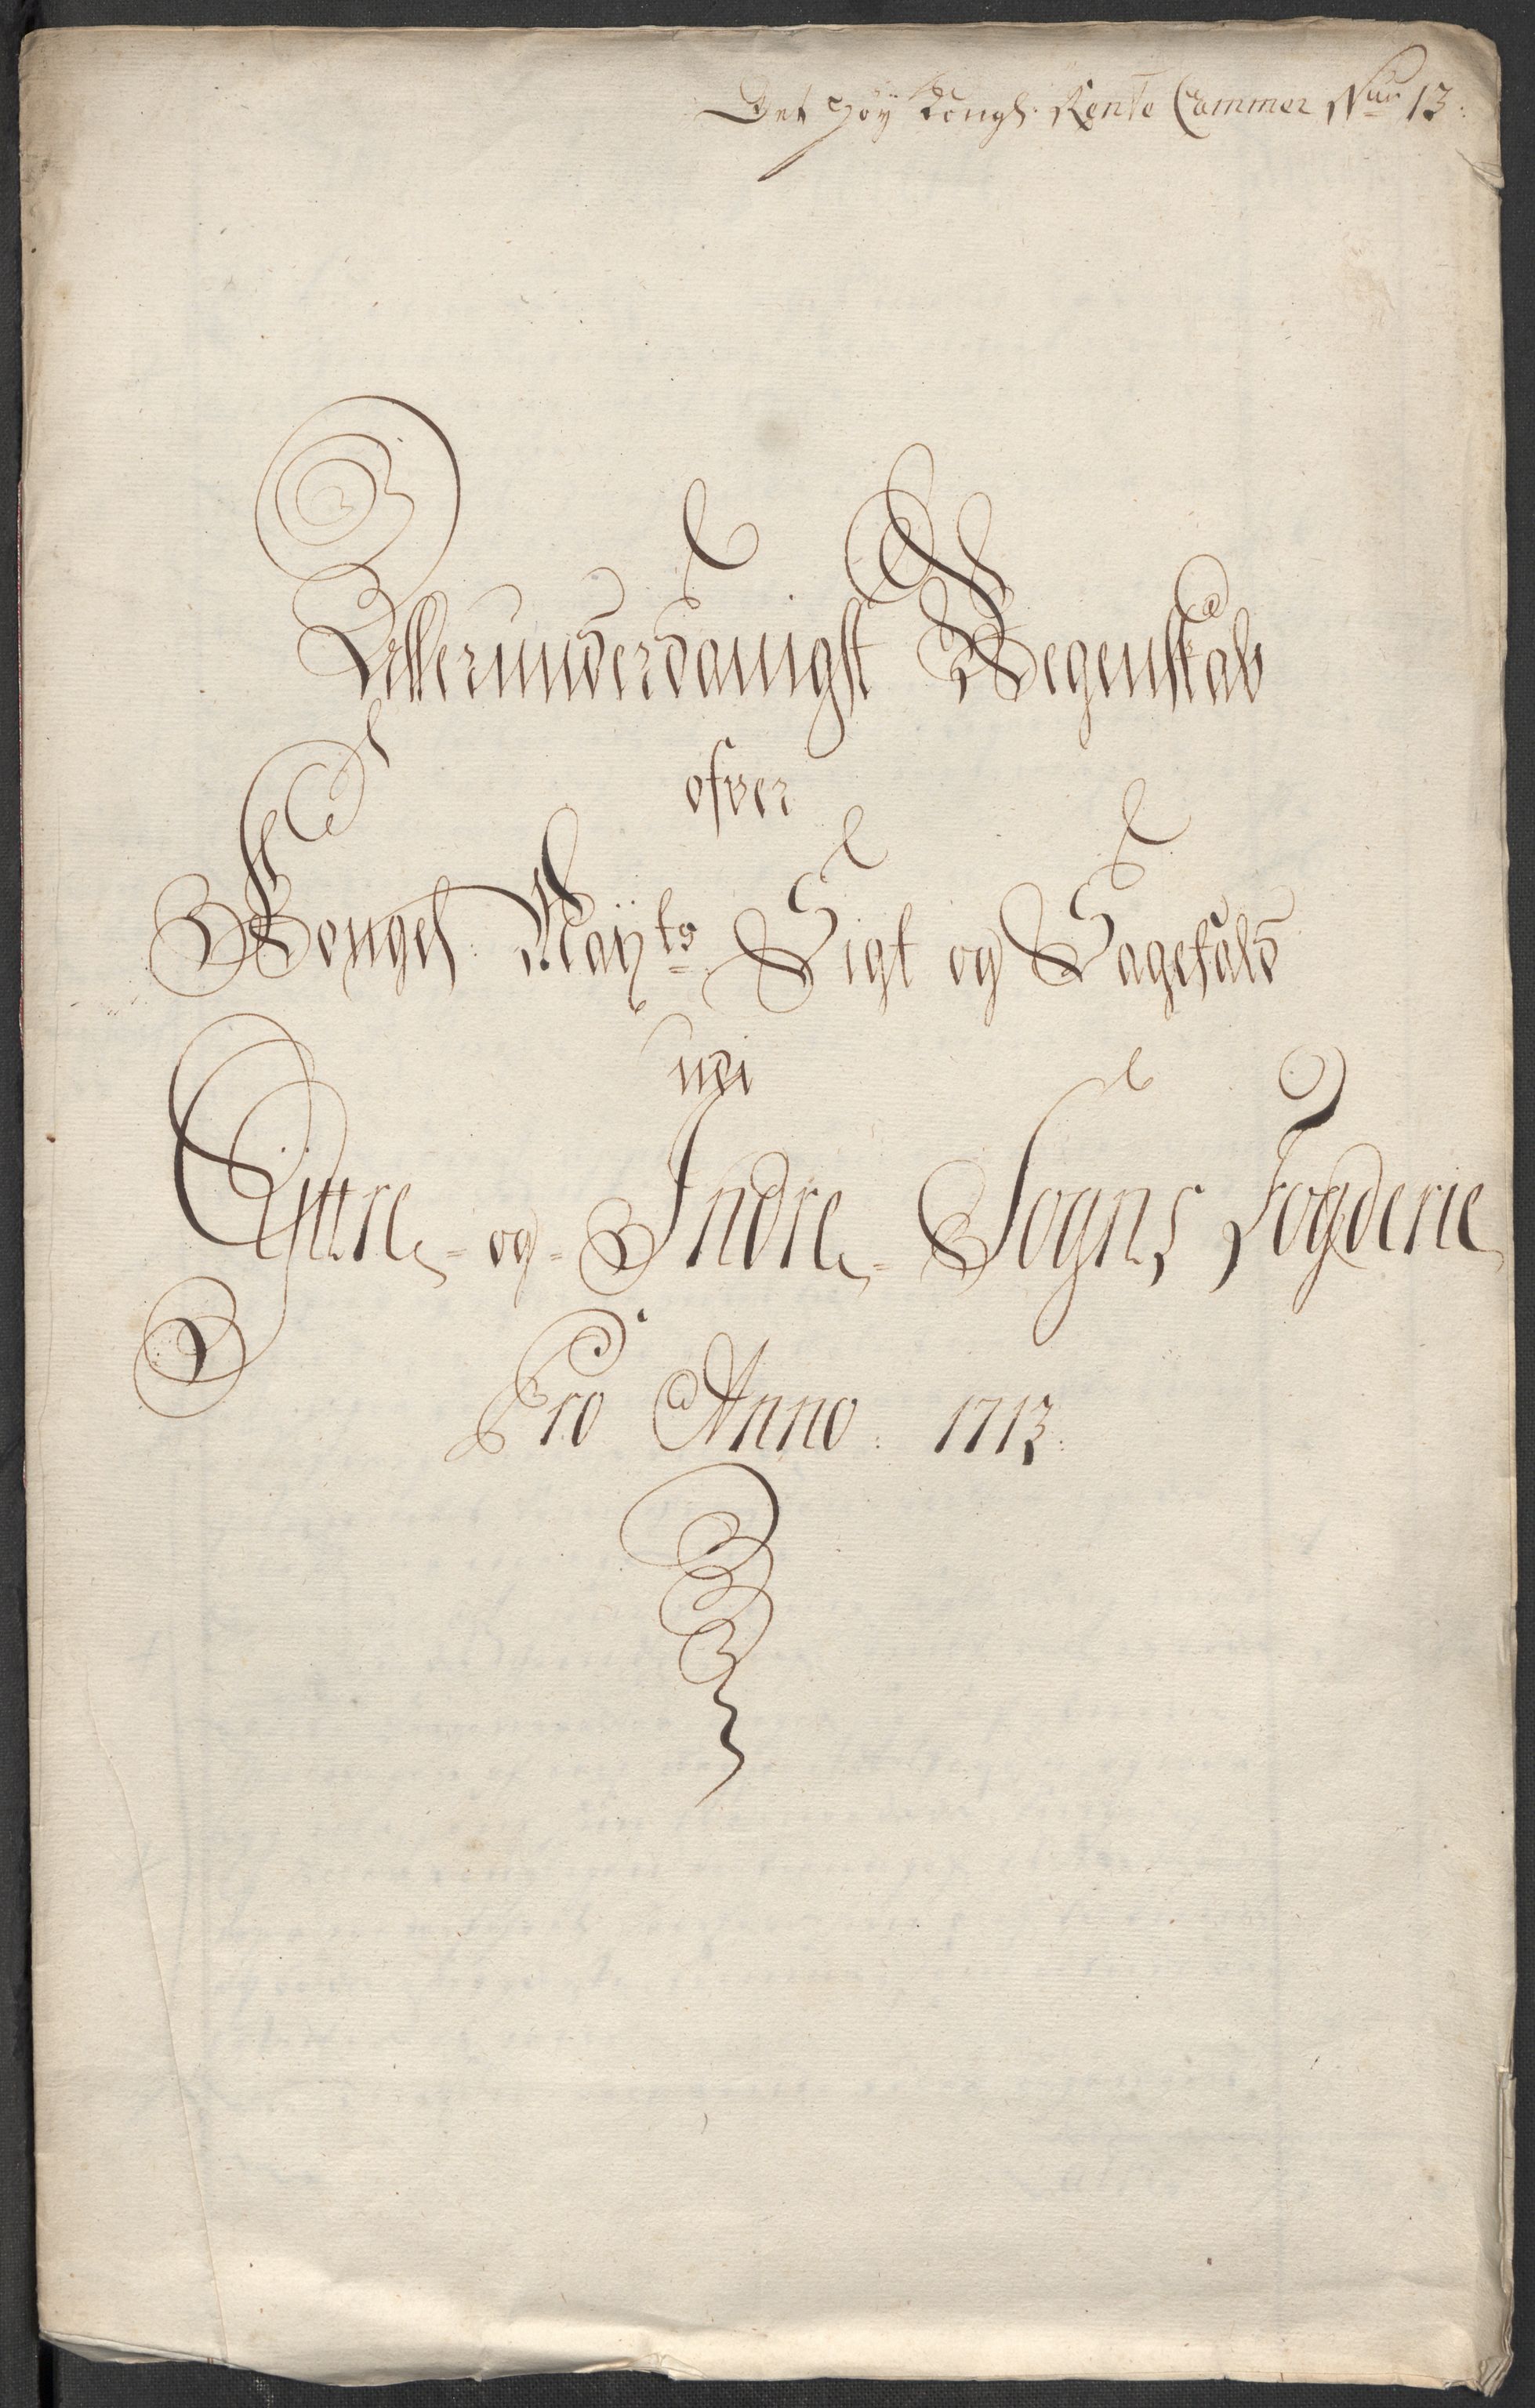 Det høy Kongl: Rente Cammer No 13:
Allerunderdanigst Regenskab
ofver
Kongel: Mayts Sigt og Sagefald
udi
Yttre- og- Indre- Sogns Fogderie
Pro Anno: 1713: